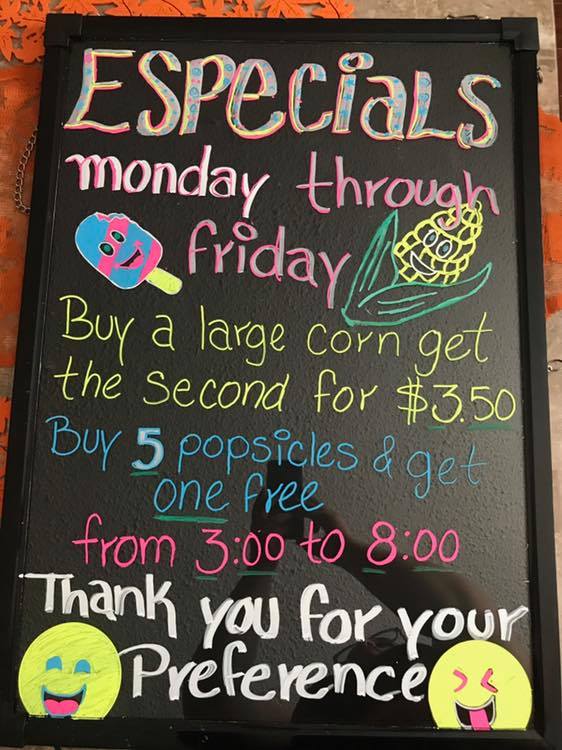 ESPECiALS
monday through
friday
Buy a large corn get
the second for $3.50
Buy 5 popsicles & get
one free
from 3:00 to 8:00
Thank you for your
Preference